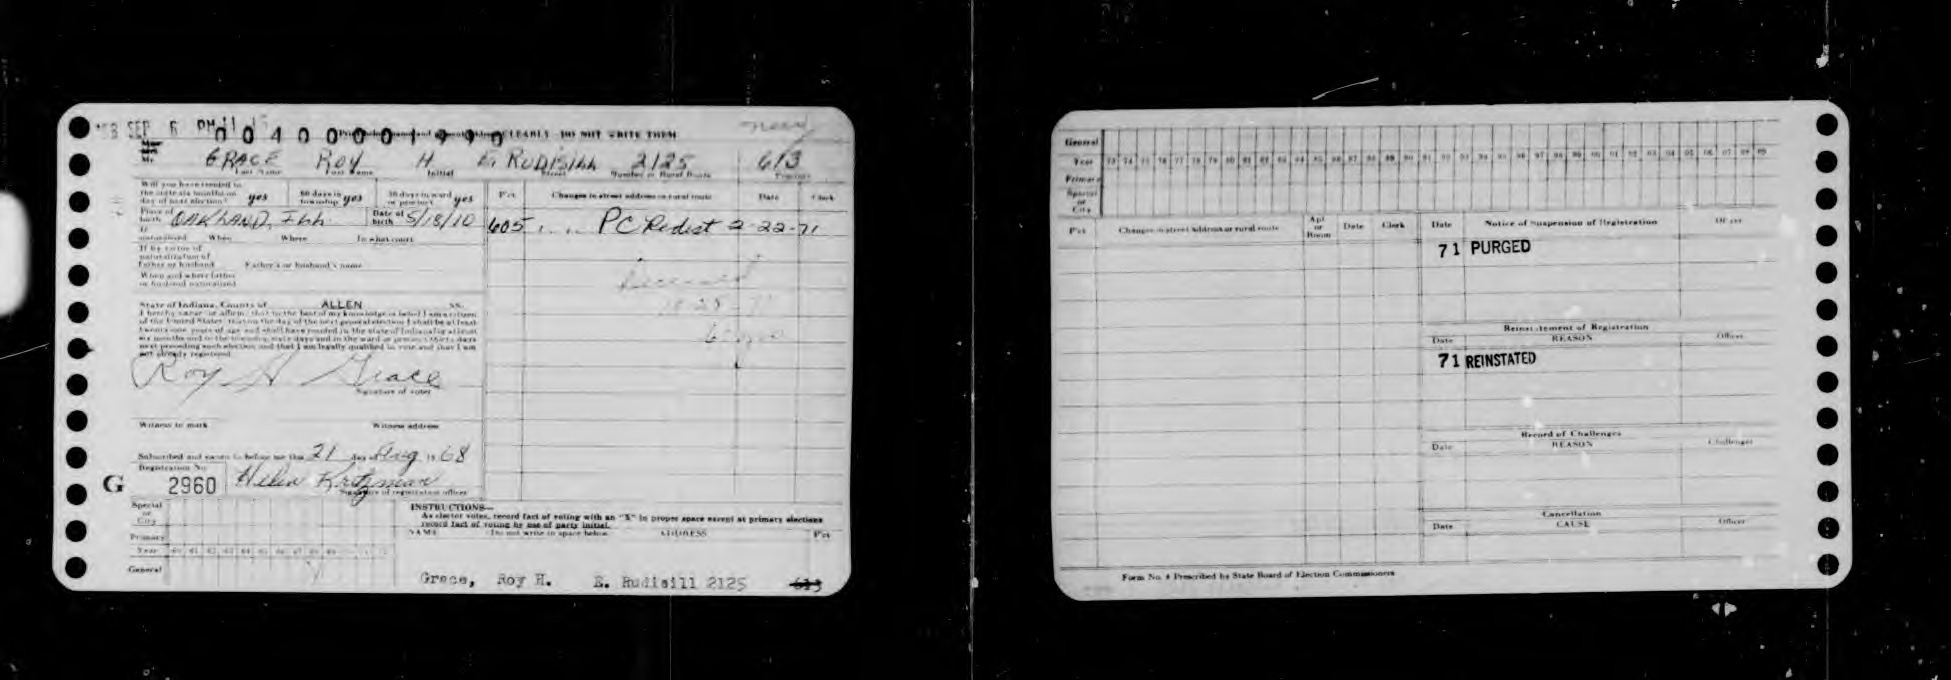 SEP 6 PM
00400001990
CLEARLY DO NOT WRITE THEM
GRACE ROY H E. RUDISILL 2125 613
Last Name First Name Initial Street Number or Rural Route Precinct
Will you have resided in
the state six months on
day of next election? yes
60 days in
township yes
30 days in ward
or precinct yes
Pct Changes in street address or rural route Date Clerk
Place of
birth OAKLAND, ILL
Date of
birth 5/18/10
605 PC Redist 2-22-71
If
naturalized When Where In what court
If by virtue of
naturalization of
Father or husband Father's or husband's name
When and where father
or husband naturalized
Deceased
State of Indiana, County of ALLEN SS.
I hereby swear or affirm, that to the best of my knowledge or belief I am a citizen
of the United States; that on the day of the next general election I shall be at least
twenty-one years of age and shall have resided in the state of Indiana for at least
six months and in the township sixty days and in the ward or precinct thirty days
next preceding such election and that I am legally qualified to vote and that I am
not already registered.
Roy H Grace
Signature of voter
Witness to mark Witness address
Subscribed and sworn to before me this 21 day of Aug 19 68
Registration No.
G 2960 Helen Kritzman
Signature of registration officer
Special
or
City
Primary
Year 60 61 62 63 64 65 66 67 68 69
General
INSTRUCTIONS—
As elector votes, record fact of voting with an "X" in proper space except at primary elections
record fact of voting by use of party initial.
NAME Do not write in space below ADDRESS Pct
Grace, Roy H. E. Rudisill 2125 613
General
Year 73 74 75 76 77 78 79 80 81 82 83 84 85 86 87 88 89 90 91 92 93 94 95 96 97 98 99 00 01 02 03 04 05 06 07 08 09
Primary
Special
or
City
Pct Changes in street address or rural route Apl or Room Date Clerk
Date Notice of Suspension of Registration Officer
71 PURGED
Reinstatement of Registration
Date REASON Officer
71 REINSTATED
Record of Challenges
Date REASON Challenger
Cancellation
Date CAUSE Officer
Form No. 4 Prescribed by State Board of Election Commissioners